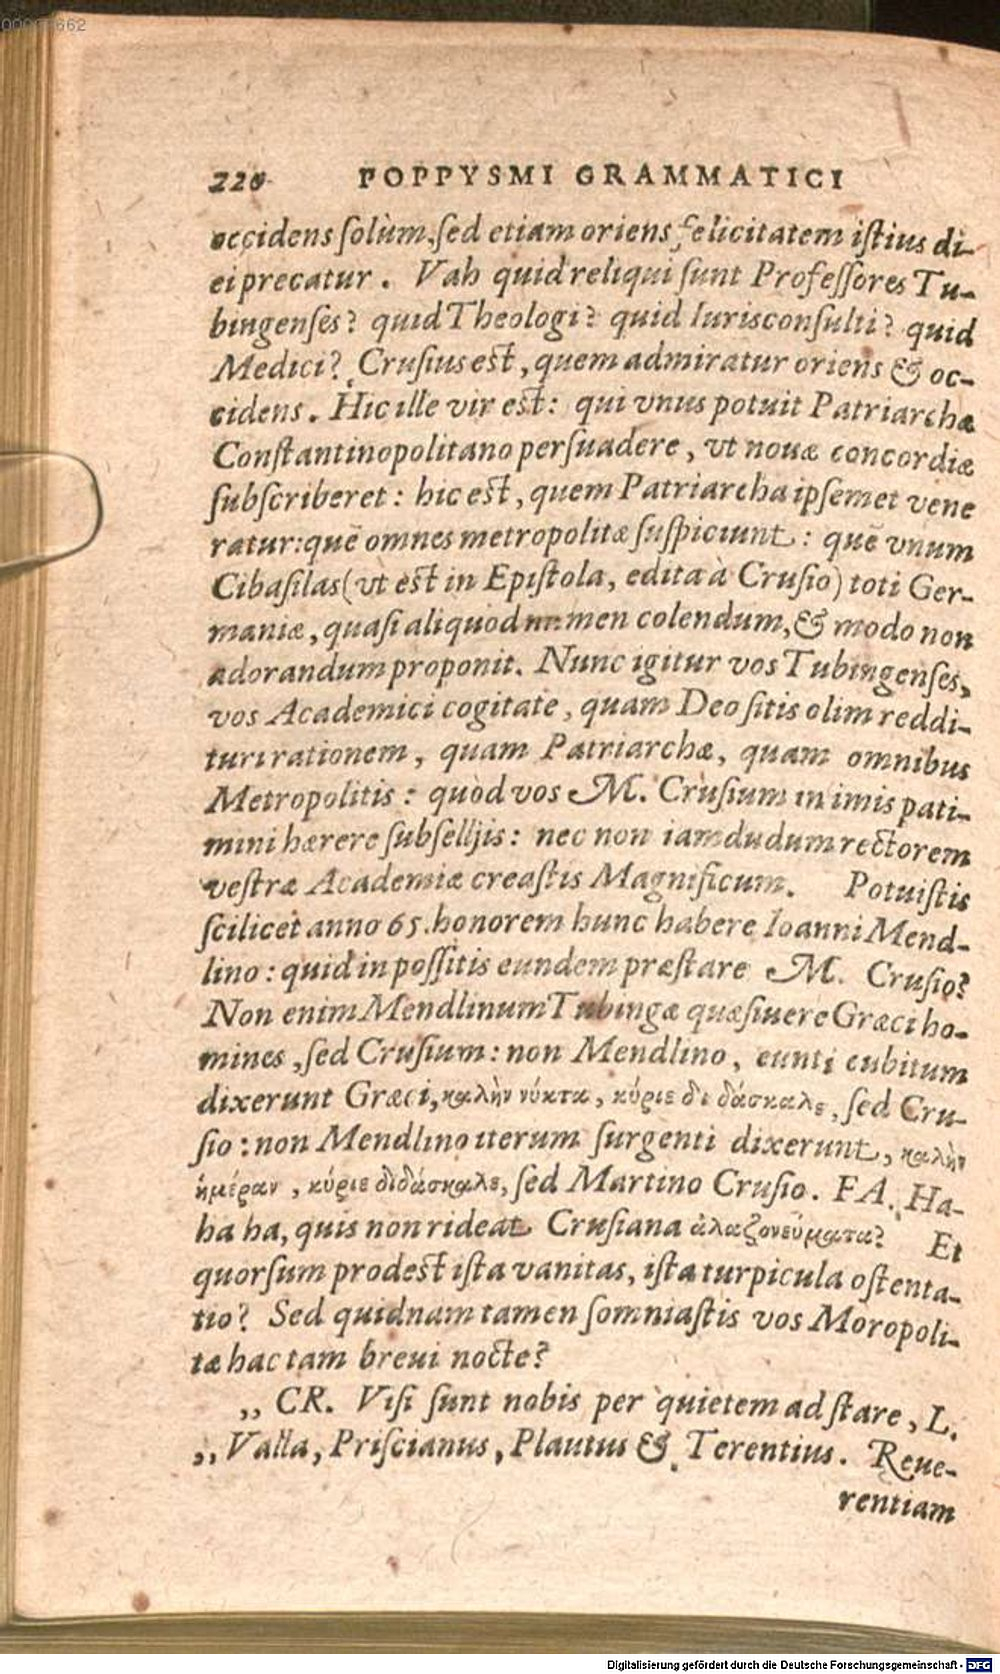 00000662
220 POPPYSMI GRAMMATICI
occidens ſolùm, ſed etiam oriens felicitatem iſtius di-
ei precatur. Vah quid reliqui ſunt Profeſſores Tu-
bingenſes? quid Theologi? quid Iurisconſulti? quid
Medici? Cruſius eſt, quem admiratur oriens & oc-
cidens. Hic ille vir eſt: qui vnus potuit Patriarchæ
Conſtantinopolitano perſuadere, vt nouæ concordiæ
ſubſcriberet: hic eſt, quem Patriarcha ipſemet vene
ratur: quẽ omnes metropolitæ ſuſpiciunt: quẽ vnum
Cibaſilas (vt eſt in Epiſtola, edita à Cruſio) toti Ger-
maniæ, quaſi aliquod numen colendum, & modo non
adorandum proponit. Nunc igitur vos Tubingenſes,
vos Academici cogitate, quam Deo ſitis olim reddi-
turi rationem, quam Patriarchæ, quam omnibus
Metropolitis: quòd vos M. Cruſium in imis pati-
mini hærere ſubſellijs: nec non iamdudum rectorem
veſtræ Academiæ creaſtis Magnificum. Potuiſtis
ſcilicet anno 65. honorem hunc habere Ioanni Mend-
lino: quid in poſſitis eundem præſtare M. Cruſio?
Non enim Mendlinum Tubingæ quæſiuere Græci ho-
mines, ſed Cruſium: non Mendlino, eunti cubitum
dixerunt Græci, καλὴν νύκτα, κύριε διδάσκαλε, ſed Cru-
ſio: non Mendlino iterum ſurgenti dixerunt, καλὴν
ἡμέραν, κύριε διδάσκαλε, ſed Martino Cruſio. FA. Ha-
ha ha, quis non rideat Cruſiana ἀλαζονεύματα? Et
quorſum prodeſt iſta vanitas, iſta turpicula oſtenta-
tio? Sed quidnam tamen ſomniaſtis vos Moropoli-
tæ hac tam breui nocte?
„ CR. Viſi ſunt nobis per quietem adſtare, L.
„ Valla, Priſcianus, Plautus & Terentius. Reue-
rentiam
Digitalisierung gefördert durch die Deutsche Forschungsgemeinschaft - DFG